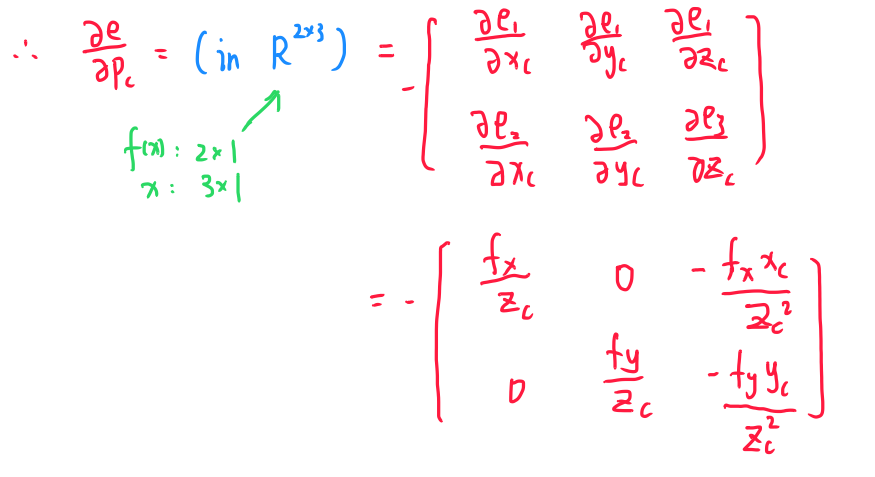 ∴ ∂e/∂p_c = (in R^{2×3}) = -[ ∂e_1/∂x_c ∂e_1/∂y_c ∂e_1/∂z_c
∂e_2/∂x_c ∂e_2/∂y_c ∂e_3/∂z_c ]
f(x): 2×1
x: 3×1
= -[ f_x/z_c 0 -f_x x_c/z_c^2
0 f_y/z_c -f_y y_c/z_c^2 ]